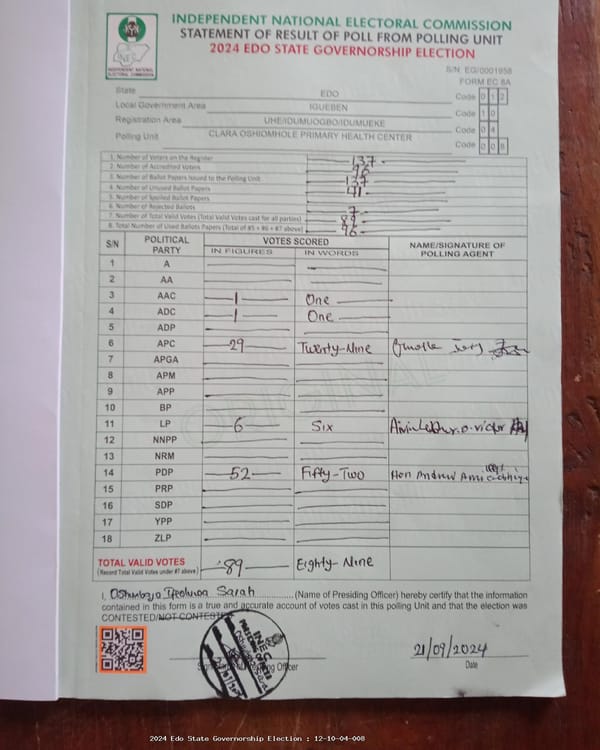 INDEPENDENT NATIONAL ELECTORAL COMMISSION
STATEMENT OF RESULT OF POLL FROM POLLING UNIT
2024 EDO STATE GOVERNORSHIP ELECTION
S/N EG/0001958
FORM EC 8A
State EDO Code 0 1 2
Local Government Area IGUEBEN Code 1 0
Registration Area UHE/IDUMUOGBO/IDUMUEKE Code 0 4
Polling Unit CLARA OSHIOMHOLE PRIMARY HEALTH CENTER Code 0 0 8
1. Number of Voters on the Register 137
2. Number of Accredited Voters 96
3. Number of Ballot Papers Issued to the Polling Unit 137
4. Number of Unused Ballot Papers 41
5. Number of Spoiled Ballot Papers
6. Number of Rejected Ballots 7
7. Number of Total Valid Votes (Total Valid Votes cast for all parties) 89
8. Total Number of Used Ballots Papers (Total of #5 + #6 + #7 above) 96
S/N POLITICAL PARTY VOTES SCORED NAME/SIGNATURE OF POLLING AGENT
IN FIGURES IN WORDS
1 A
2 AA
3 AAC 1 One
4 ADC 1 One
5 ADP
6 APC 29 Twenty-Nine
7 APGA
8 APM
9 APP
10 BP
11 LP 6 Six
12 NNPP
13 NRM
14 PDP 52 Fifty-Two Hon Andrew
15 PRP
16 SDP
17 YPP
18 ZLP
TOTAL VALID VOTES 89 Eighty-Nine
(Record Total Valid Votes under #7 above)
I, Sarah (Name of Presiding Officer) hereby certify that the information
contained in this form is a true and accurate account of votes cast in this polling Unit and that the election was
CONTESTED/NOT CONTESTED
Officer
21/09/2024
Date
2024 Edo State Governorship Election : 12-10-04-008